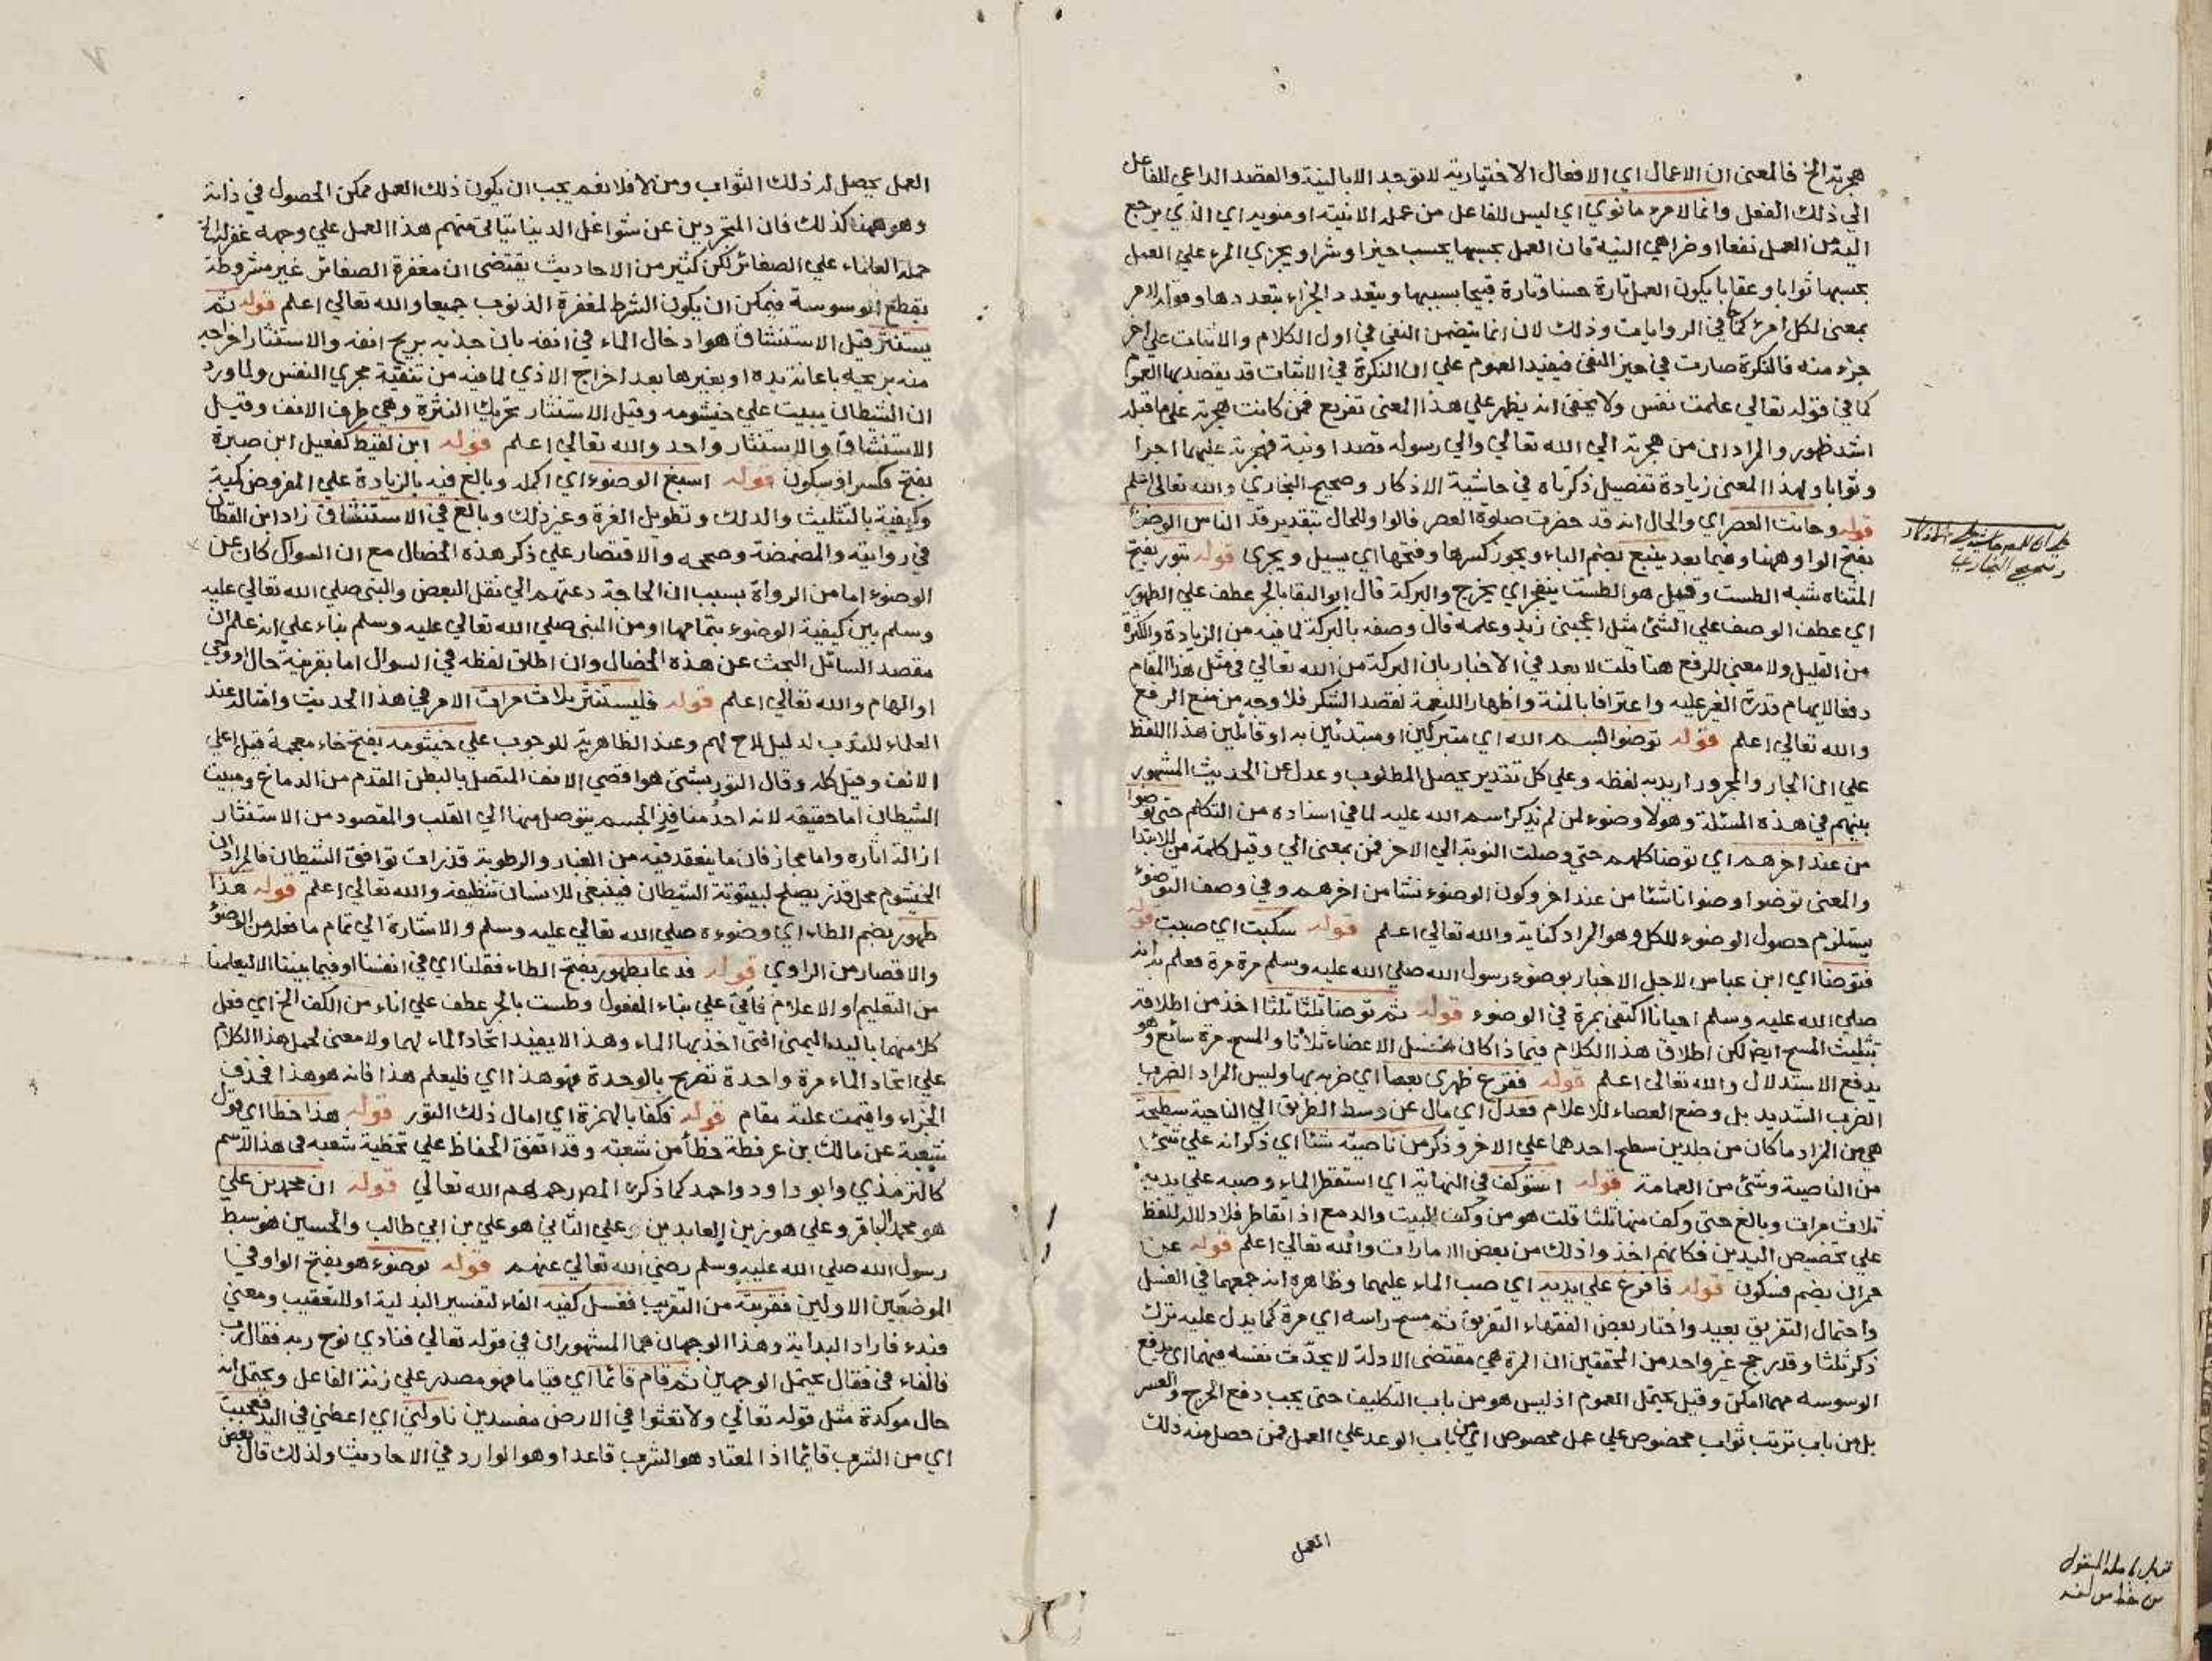 هجرته الخ فالمعنى ان الاعمال اي الافعال الاختيارية لا توجد الا بالنية والقصد الداعي للفاعل
الي ذلك الفعل وانما لامرء ما نوي اي ليس للفاعل من عمله الا نيته او منويه اي الذي يرجع
اليه من العمل نفعا او ضرا هي النية فان العمل بحسبها يحسب خيرا وشرا ويجزي المرء علي العمل
بحسبها ثوابا وعقابا يكون العمل تارة حسنا وتارة قبيحا بسببها ويتعدد الجزاء بتعددها وقوله لامر
بمعنى لكل امرء كما في الروايات وذلك لان انما يتضمن النفي في اول الكلام والاثبات علي اخر
جزء منه فالنكرة صارت في حيز النفي فيفيد العموم علي ان النكرة في الاثبات قد يقصد بها العموم
كما في قوله تعالي علمت نفس ولا يخفى انه يظهر علي هذا المعنى تفريع فمن كانت هجرته علي ما قبله
اشد ظهور والمراد ان من هجرته الي الله تعالي والي رسوله قصدا ونية فهجرته عليهما اجرا
وثوابا ولهذا المعنى زيادة تفصيل ذكرناه في حاشية الاذكار وصحيح البخاري والله تعالى اعلم
قوله وحانت العصر اي والحال انه قد حضرت صلوة العصر قالوا وللحال بتقدير قد الناس الوضوء
بفتح الواو ههنا وفيما بعد ينبع بضم الباء ويجوز كسرها وفتحها اي يسيل ويجري قوله بتور بفتح
المثناه شبه الطست وقيل هو الطست ينفجر اي يخرج والبركة قال ابو البقا بالجر عطف علي الطهور
اي عطف الوصف علي الشئ مثل اعجبني زيد وعلمه قال وصفه بالبركة لما فيه من الزيادة والكثرة
من القليل ولا معني للرفع هنا قلت لا بعد في الاخبار بان البركة من الله تعالي في مثل هذا المقام
دفعا لايهام قدرة الغير عليه واعترافا بالمنة واظهارا للنعمة لقصد الشكر فلا وجه من منع الرفع
والله تعالي اعلم قوله توضوا بسم الله اي متبركين او مبتدئين به او قائلين هذا اللفظ
علي ان الجار والمجرور اريد به لفظه وعلي كل تقدير يحصل المطلوب وعدل عن الحديث المشهور
بينهم في هذه المسئلة وهو لا وضوء لمن لم يذكر اسم الله عليه لما في اسناده من التكلم حتى توضوا
من عند اخرهم اي توضا كلهم حتي وصلت النوبة الي الاخر فمن بمعنى الي وقيل كلمة من للابتدا
والمعنى توضوا وضوا ناشئا من عند اخر وكون الوضوء نشا من اخرهم وفي وصف التوضوء
يستلزم حصول الوضوء للكل وهو المراد كناية والله تعالي اعلم قوله سكبت اي صببت قوله
فتوضا اي ابن عباس لاجل الاخبار بوضوء رسول الله صلي الله عليه وسلم مرة مرة فعلم به انه
صلي الله عليه وسلم احيانا اكتفى بمرة في الوضوء قوله ثم توضا ثلثا ثلثا اخذ من اطلاقه
تثليث المسح ايضا لكن اطلاق هذا الكلام فيما اذا كان غسل الاعضاء ثلاثا والمسح مرة سائغ وهو
يدفع الاستدلال والله تعالى اعلم قوله فقرع ظهري بعصا اي ضربه بها وليس المراد الضرب
الضرب الشديد بل وضع العصاء للاعلام فعدل اي مال عن وسط الطريق الي الناحية سطيحة
هي من المزاد ما كان من جلدين سطح احدهما علي الاخر وذكر من ناصيته شئا اي ذكر انه علي شئ
من الناصية وشئ من العمامة قوله استوكف في النهاية اي استقطر الماء وصبه علي يديه
ثلاث مرات وبالغ حتى وكف منها ثلثا قلت هو من وكف البيت والدمع اذا تقاطر فلا دلالة للفظ
علي تخصيص اليدين فكانهم اخذوا ذلك من بعض الامارات والله تعالي اعلم قوله عن
حمران بضم فسكون قوله فافرغ علي يديه اي صب الماء عليهما وظاهره انه جمعهما في الغسل
واحتمال التفريق بعيد واختار بعض الفقهاء التفريق ثم مسح راسه اي مرة كما يدل عليه ترك
ذكر ثلثا وقد رجح غير واحد من المحققين ان المرة هي مقتضى الادلة لا يحدث نفسه فيهما اي يدفع
الوسوسه مهما امكن وقيل يحتمل العموم اذ ليس هو من باب التكليف حتى يجب دفع الحرج والعسر
بل من باب ترتب ثواب مخصوص علي عمل مخصوص اي من باب الوعد علي العمل فمن حصل منه ذلك
العمل
وصحيح البخاري
العمل يحصل له ذلك الثواب ومن لا فلا نعم يجب ان يكون ذلك العمل ممكن الحصول في ذاته
وهو ههنا كذلك فان المتجردين عن شواغل الدنيا يتاتى منهم هذا العمل علي وجهه غفر له
حمله العلماء علي الصغائر لكن كثير من الاحاديث يقتضى ان مغفرة الصغائر غير مشروطة
بقطع الوسوسة فيمكن ان يكون الشرط لمغفرة الذنوب جميعا والله تعالي اعلم قوله ثم
يستنثر قيل الاستنشاق هو ادخال الماء في انفه بان جذبه بريح انفه والاستنثار اخراجه
منه بريحه باعانة يده او بغيرها بعد اخراج الاذي لما فيه من تنقية مجري النفس ولما ورد
ان الشيطان يبيت علي خيشومه وقيل الاستنثار تحريك النثرة وهي طرف الانف وقيل
الاستنشاق والاستنثار واحد والله تعالي اعلم قوله ابن لقيط كفعيل ابن صبرة
بفتح فكسر او سكون قوله اسبغ الوضوء اي اكمله وبالغ فيه بالزيادة علي المفروض كمية
وكيفية بالتثليث والدلك وتطويل الغرة وغير ذلك وبالغ في الاستنشاق زاد ابن القطان
في روايته والمضمضة وصححه والاقتصار علي ذكر هذه الخصال مع ان السوال كان عن
الوضوء اما من الرواة بسبب ان الحاجة دعتهم الي نقل البعض والنبي صلي الله تعالي عليه
وسلم بين كيفية الوضوء بتمامها او من النبي صلي الله تعالي عليه وسلم بناء علي انه علم ان
مقصد السائل البحث عن هذه الخصال وان اطلق لفظه في السوال اما بقرينة حال او وحي
او الهام والله تعالي اعلم قوله فليستنثر ثلاث مرات الامر في هذا الحديث وامثاله عند
العلماء للندب لدليل لاح لهم وعند الظاهرية للوجوب علي خيشومه بفتح خاء معجمة قيل اعلي
الانف وقيل كله وقال التوربشتي هو اقصي الانف المتصل بالبطن المقدم من الدماغ ومبيت
الشيطان اما حقيقه لانه احد منافذ الجسم يتوصل منها الي القلب والمقصود من الاستنثار
ازالة اثاره واما مجاز فان ما ينعقد فيه من الغبار والرطوبة قذرات توافق الشيطان فالمراد ان
الخيشوم محل قذر يصلح لبيتوتة الشيطان فينبغي للانسان تنظيفه والله تعالي اعلم قوله هذا
طهور بضم الطاء اي وضوءه صلي الله تعالي عليه وسلم والاشارة الي تمام ما فعله من الوضوء
والاقصار من الراوي قوله فدعا بطهور بفتح الطاء فقلنا اي في انفسنا او فيما بيننا الا ليعلمنا
من التعليم او الاعلام فأتي علي بناء المفعول وطست بالجر عطف علي اناء من الكف الخ اي فعل
كلا منهما باليد اليمنى التي اخذ بها الماء وهذا لا يفيد اتحاد الماء لهما ولا معنى لحمل هذا الكلام
علي اتحاد الماء مرة واحدة تصريح بالوحدة فهو هذا اي فليعلم هذا فانه هو هذا فحذف
الجزاء واقيمت علته مقام قوله فكفأ بالهمزة اي امال ذلك التور قوله هذا خطأ اي قول
شعبة عن مالك بن عرفطة خطأ من شعبة وقد اتفق الحفاظ علي تخطية شعبه في هذا الاسم
كالترمذي وابو داود واحمد كما ذكره المصر رحمهم الله تعالي قوله ان محمد بن علي
هو محمد الباقر وعلي هو زين العابدين وعلي الثاني هو علي بن ابي طالب والحسين هو سبط
رسول الله صلي الله عليه وسلم رضي الله تعالي عنهم قوله بوضوء هو بفتح الواو في
الموضعين الاولين فقربته من التقريب فغسل كفيه الفاء لتفسير البدلية او للتعقيب ومعني
فبدء فاراد البداية وهذا الوجهان هما المشهوران في قوله تعالي فنادي نوح ربه فقال رب
فالفاء في فقال يحتمل الوجهين ثم قام قائما اي قياما فهو مصدر علي زنة الفاعل ويحتمل انه
حال موكدة مثل قوله تعالي ولا تعثوا في الارض مفسدين ناولني اي اعطني في اليد فعجبت
اي من الشرب قائما اذ المعتاد هو الشرب قاعدا وهو الوارد في الاحاديث ولذلك قال بعض